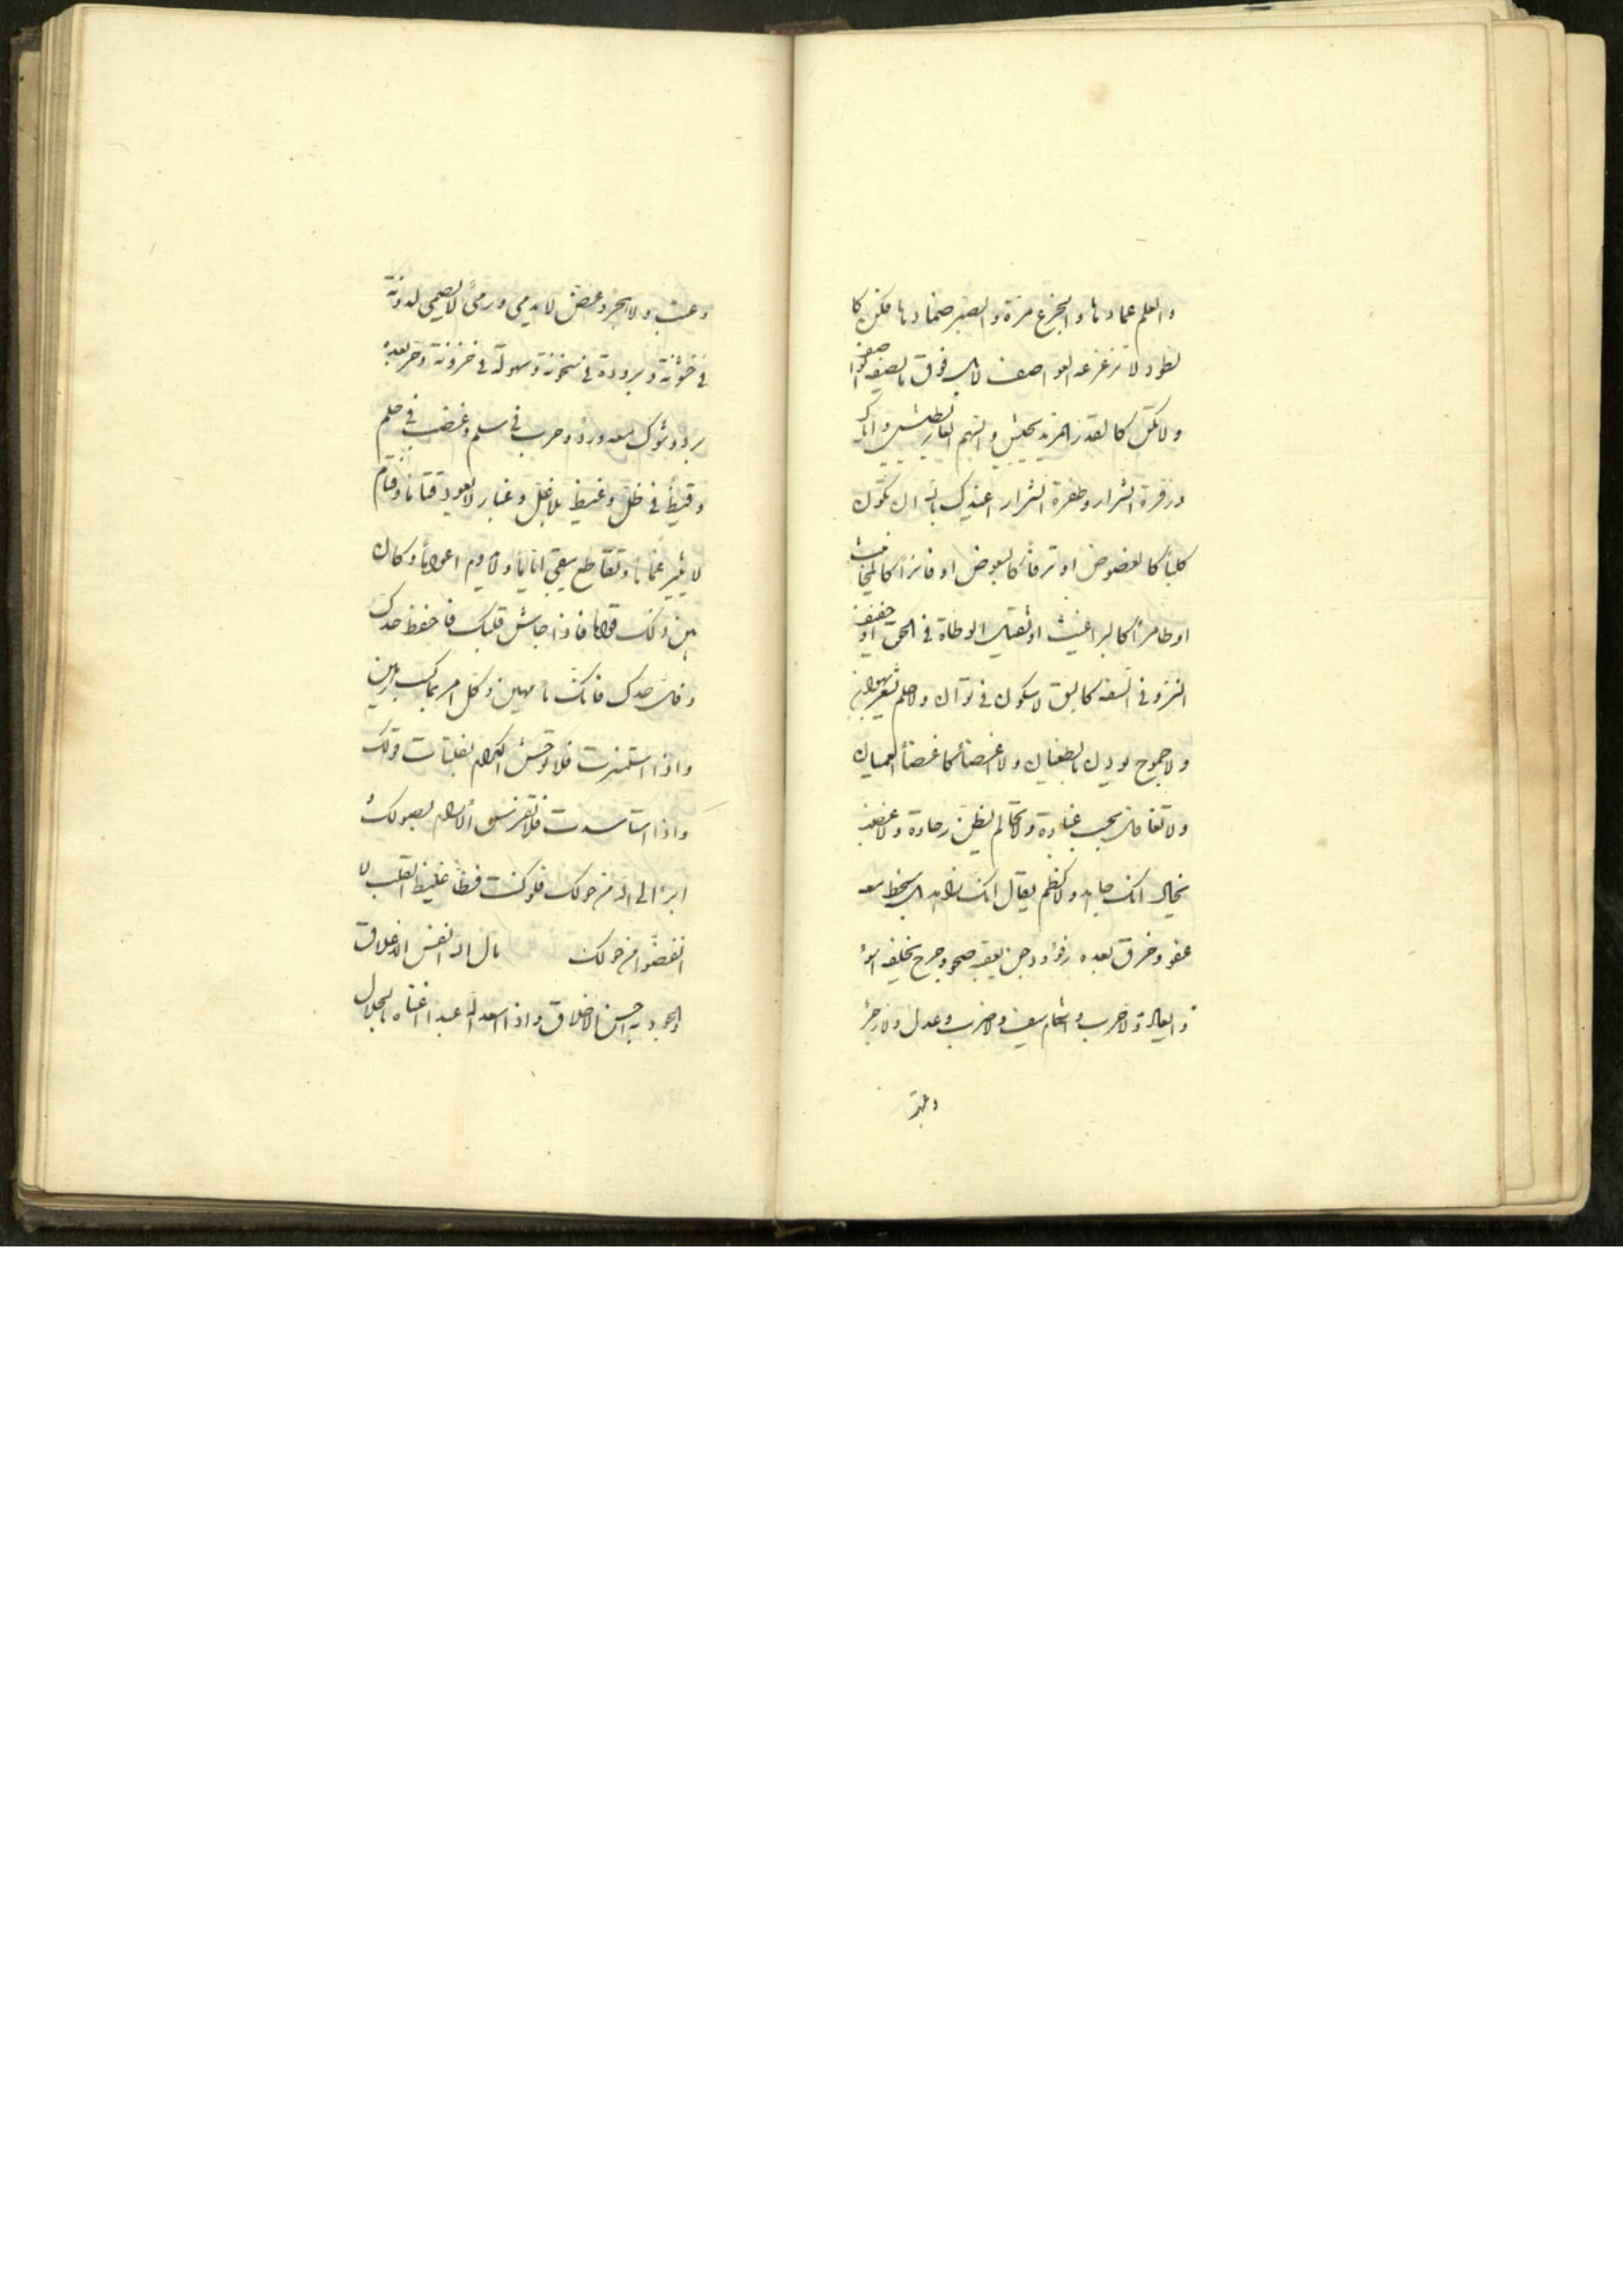 والعلم عمادها والجزع مرة والصبر ضمادها فكن كا
لطود لا تزعزعه العواصف لا بل فوق ما يصفه الواصف
ولا تكن كالقدر المزيد يجيش والسهم الغاير يطيش واياك
وزفرة الشرار وطفرة الشرار اعيذك بالله ان تكون
كلباً كالعضوض او ترقاً كالبعوض او فائزاً كا
او طامراً كالبراغيث او ثقيل الوطاة في الحق او خفيف
النزو في السفه كالبق لا سكون في توان ولا حلم
ولا جموح يوذن بالطغيان ولا اغضاً كاغضاً العميان
ولا تغافل يحسب غباوة ولا تحالم يظن رخاوة ولا غضب
يخال انك جاهد ولا كظم يقال انك زاهد بل سخط معه
عفو وخرق بعده رفو ودجن يعقبه صحو وجرح يخلفه اسو
وايعاد ولا حرب وانتقام سيف ولا ضرب وعدل ولا زجر
وعتب
وعتب ولا هجر وعض لا يدمي ورمي لا يصمي لدونة
في خشونة وبرودة في سخونة وسهولة في حزونة وحر بعده
برد وشوك معه ورد وحرب في سلم وغضب في حلم
وقيظ في ظل وغيظ بلا غل وغبار لا يعود قتاماً وقتام
لا يثير غماماً وتقاطع يبقى اياماً ولا يدوم اعواماً وكان
بين ذلك قواماً فاذا جاش قلبك فاحفظ حدك
وفل حدك فانك ما مهين وكل امر بما كسب رهين
واذا استنمرت فلا توحش الكرام بفلتات قولك
واذا استاسدت فلا تفترس الانام بصولك
ابرا الى الله من حولك فلو كنت فظاً غليظ القلب لا
انفضوا من حولك مال الله انفس الاعلاق
والجود به احسن الاخلاق واذا اسعد الله عبداً اغناه بالحلال